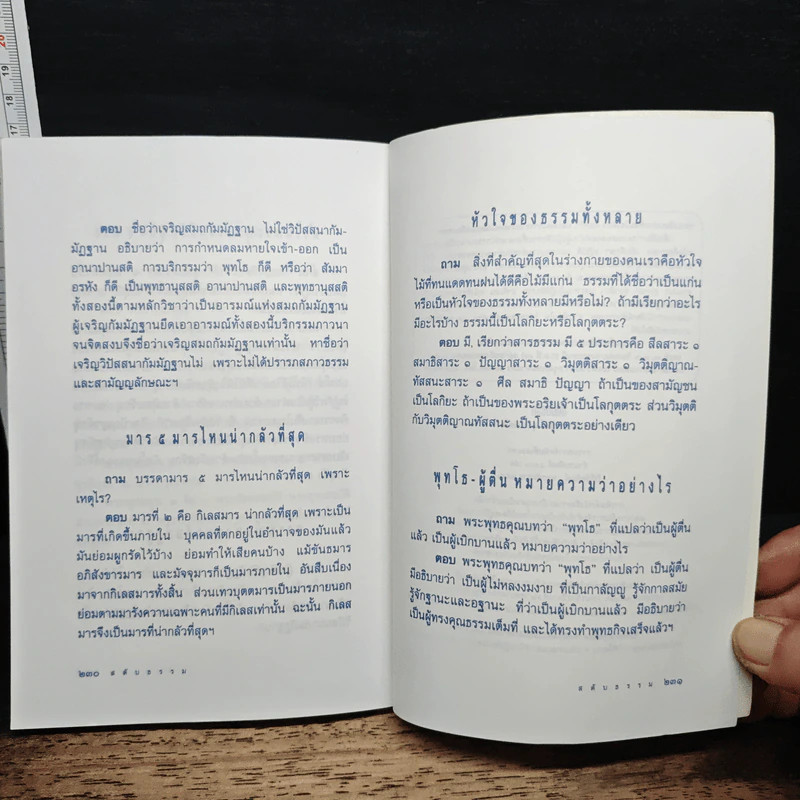 ตอบ ชื่อว่าเจริญสมถกัมมัฏฐาน ไม่ใช่วิปัสสนากัม-
มัฏฐาน อธิบายว่า การกำหนดลมหายใจเข้า-ออก เป็น
อานาปานสติ การบริกรรมว่า พุทโธ ก็ดี หรือว่า สัมมา
อรหัง ก็ดี เป็นพุทธานุสสติ อานาปานสติ และพุทธานุสสติ
ทั้งสองนี้ตามหลักวิชาว่าเป็นอารมณ์แห่งสมถกัมมัฏฐาน
ผู้เจริญกัมมัฏฐานยึดเอาอารมณ์ทั้งสองนี้บริกรรมภาวนา
จนจิตสงบจึงชื่อว่าเจริญสมถกัมมัฏฐานเท่านั้น หาชื่อว่า
เจริญวิปัสสนากัมมัฏฐานไม่ เพราะไม่ได้ปรารภสภาวธรรม
และสามัญญลักษณะฯ
มาร ๕ มารไหนน่ากลัวที่สุด
ถาม บรรดามาร ๕ มารไหนน่ากลัวที่สุด เพราะ
เหตุไร?
ตอบ มารที่ ๒ คือ กิเลสมาร น่ากลัวที่สุด เพราะเป็น
มารที่เกิดขึ้นภายใน บุคคลที่ตกอยู่ในอำนาจของมันแล้ว
มันย่อมผูกรัดไว้บ้าง ย่อมทำให้เสียคนบ้าง แม้ขันธมาร
อภิสังขารมาร และมัจจุมารก็เป็นมารภายใน อันสืบเนื่อง
มาจากกิเลสมารทั้งสิ้น ส่วนเทวบุตตมารเป็นมารภายนอก
ย่อมตามมารังควานเฉพาะคนที่มีกิเลสเท่านั้น ฉะนั้น กิเลส
มารจึงเป็นมารที่น่ากลัวที่สุดฯ
๒๓๐ สดับธรรม
หัวใจของธรรมทั้งหลาย
ถาม สิ่งที่สำคัญที่สุดในร่างกายของคนเราคือหัวใจ
ไม้ที่ทนแดดทนฝนได้ดีคือไม้มีแก่น ธรรมที่ได้ชื่อว่าเป็นแก่น
หรือเป็นหัวใจของธรรมทั้งหลายมีหรือไม่? ถ้ามีเรียกว่าอะไร
มีอะไรบ้าง ธรรมนี้เป็นโลกิยะหรือโลกุตตระ?
ตอบ มี, เรียกว่าสารธรรม มี ๕ ประการคือ สีลสาระ ๑
สมาธิสาระ ๑ ปัญญาสาระ ๑ วิมุตติสาระ ๑ วิมุตติญาณ-
ทัสสนะสาระ ๑ ศีล สมาธิ ปัญญา ถ้าเป็นของสามัญชน
เป็นโลกิยะ ถ้าเป็นของพระอริยเจ้าเป็นโลกุตตระ ส่วนวิมุตติ
กับวิมุตติญาณทัสสนะ เป็นโลกุตตระอย่างเดียว
พุทโธ-ผู้ตื่น หมายความว่าอย่างไร
ถาม พระพุทธคุณบทว่า “พุทโธ” ที่แปลว่าเป็นผู้ตื่น
แล้ว เป็นผู้เบิกบานแล้ว หมายความว่าอย่างไร
ตอบ พระพุทธคุณบทว่า “พุทโธ” ที่แปลว่า เป็นผู้ตื่น
มีอธิบายว่า เป็นผู้ไม่หลงงมงาย ที่เป็นกาลัญญู รู้จักกาลสมัย
รู้จักฐานะและอฐานะ ที่ว่าเป็นผู้เบิกบานแล้ว มีอธิบายว่า
เป็นผู้ทรงคุณธรรมเต็มที่ และได้ทรงทำพุทธกิจเสร็จแล้วฯ
สดับธรรม ๒๓๑
20
19
18
17